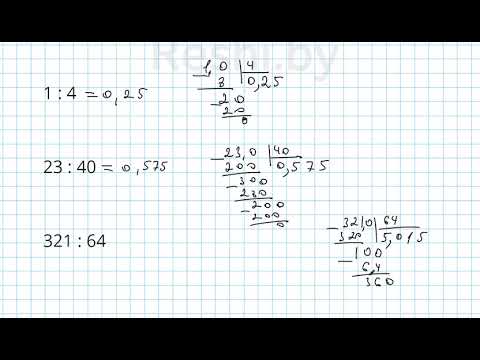 Reshi.by
1 : 4 = 0,25
1,0 4
8 0,25
20
20
0
23 : 40 = 0,575
23,0 40
200 0,575
300
280
200
200
0
321 : 64
321,0 64
320 5,015
100
6,4
360